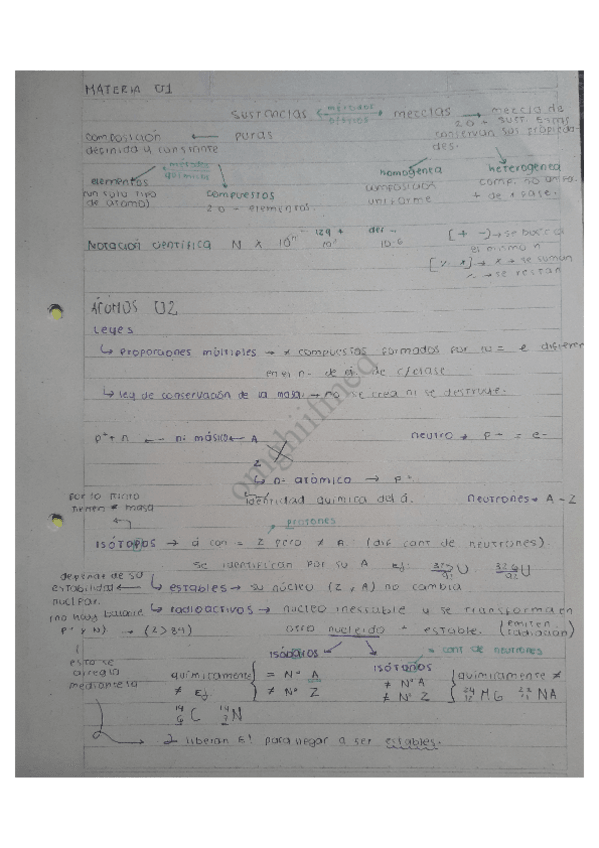 MATERIA U1
sustancias métodos físicos mezclas → mezcla de
composición ← puras 2 o + sust. conservan sus propieda-
definida y constante des.
método
elementos química homogénea heterogénea
(un solo tipo compuestos composición comp. no
de átomo) 2 o - elementos. uniforme + de 1 fase.
Notación científica N x 10ⁿ [+ -] → se busca
el mismo n
→ x → se suman
→ se restan
ÁTOMOS U2
Leyes
↳ proporciones múltiples → ≠ compuestos formados por = e difieren
en el n. de de c/clase
↳ ley de conservación de la masa → no se crea ni se destruye.
p⁺ + n ← n. másico ← A neutro → p = e-
X
Z
↳ n. atómico → p⁺
por lo tanto identidad química del á. neutrones → A - Z
tienen ≠ masa
protones
ISÓTOPOS → á con = Z pero ≠ A. (dif cant de neutrones).
se identifican por su A Ej: U U
depende de su
estabilidad ← ↳ estables → su núcleo (Z, A) no cambia
nuclear.
(no hay balance ↳ radioactivos → núcleo inestable y se transforma en
p⁺ y N) → (Z > 84) otro nucleido + estable. (emiten radiación)
ISÓBAROS ISÓTONOS → = cant de neutrones
esto se
arregla químicamente = N° A ≠ N° A químicamente ≠
mediante la ≠ Ej ≠ N° Z ≠ N° Z MG NA
C N
2 liberan E! para llegar a ser estables.
omghiifmed